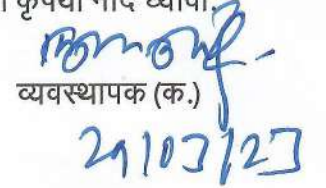 कृपया नोंद घ्यावी.
व्यवस्थापक (क.)
29/03/23